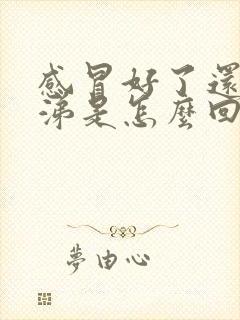 感冒好了還
涕是怎麼回
夢由心